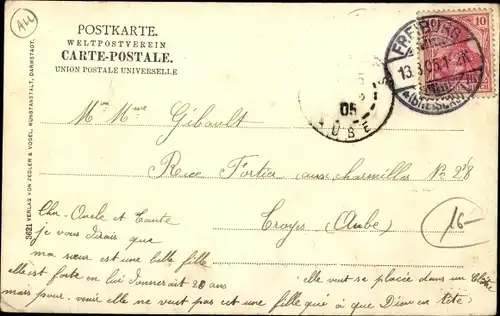 All
POSTKARTE.
WELTPOSTVEREIN
CARTE-POSTALE.
UNION POSTALE UNIVERSELLE
10
FREIBURG
13.8.05.1
(BREISGAU)
05
AUBE
3621 VERLAG VON ZEDLER & VOGEL, KUNSTANSTALT, DARMSTADT.
Mr Mme Gibault
Rue Fortier aux charmilles No 28
Troyes (Aube)
16-
Cher Oncle et Tante
je vous dirais que
ma sœur est une belle fille
elle est forte on lui donnerait 20 ans
mais pour venir elle ne veut pas
elle veut se placée dans un
cet une fille qui a que Dieu en tête